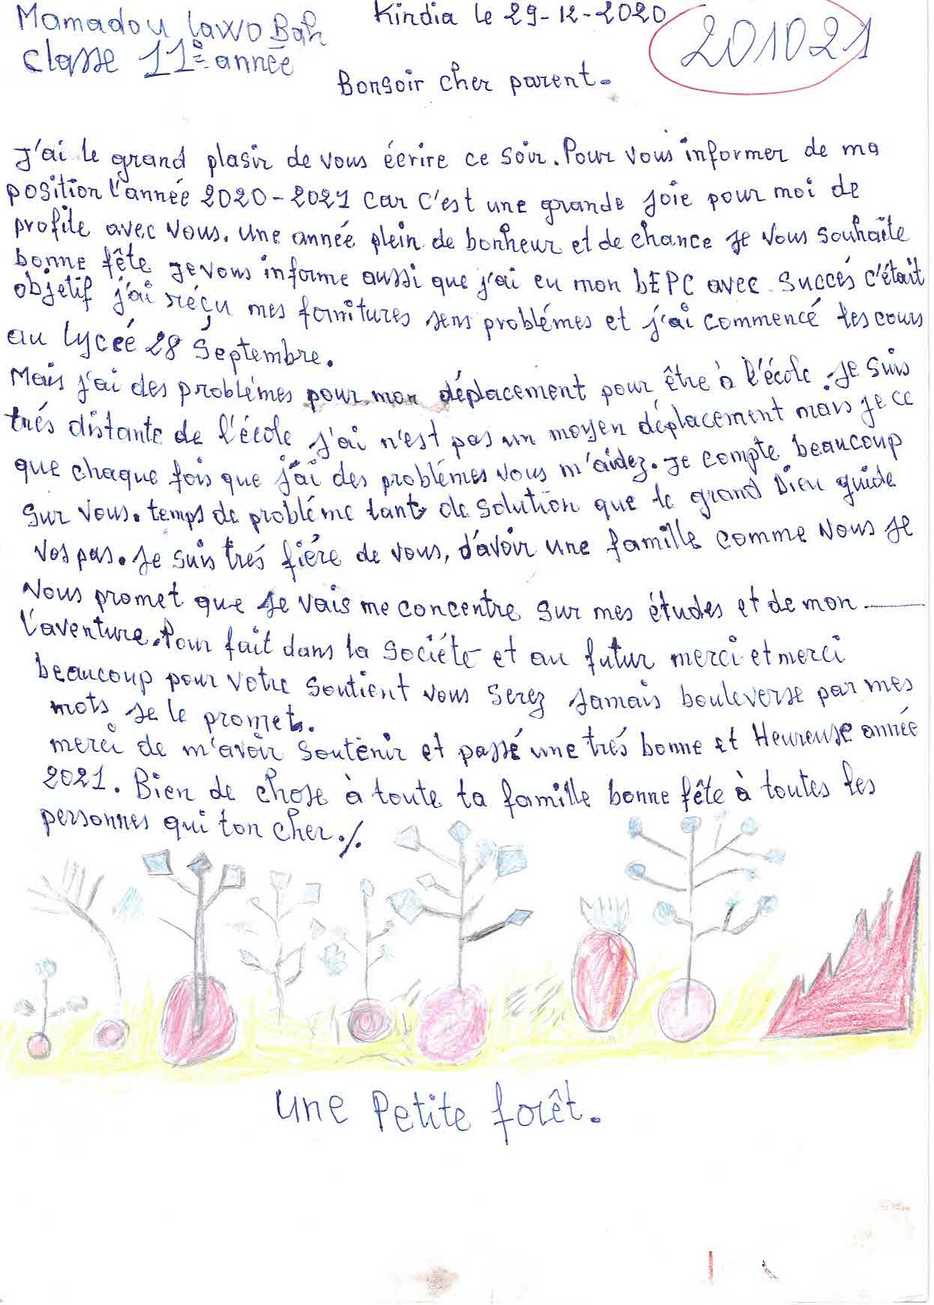 Mamadou Lawo Bah
Kindia le 29-12-2020
201021
Classe 11e année
Bonsoir cher parent.
J'ai le grand plasir de vous écrire ce soir. Pour vous informer de ma
position l'année 2020-2021 car c'est une grande joie pour moi de
profite avec vous. une année plein de bonheur et de chance je vous souhaite
bonne fête je vous informe aussi que j'ai eu mon bEPC avec succés c'était
objétif j'ai réçu mes fornitures sens problémes et j'ai commencé les cours
au lycée 28 septembre.
Mais j'ai des problémes pour mon déplacement pour être à l'école. Je suis
trés distante de l'école j'ai n'est pas un moyen déplacement mars je ce
que chaque fois que j'ai des problémes vous m'aidez. Je compte beaucoup
sur vous. temps de probléme tant de solution que le grand Dieu guide
vos pas. Je suis trés fiére de vous, d'avoir une famille comme vous je
vous promet que je vais me concentre sur mes études et de mon
l'aventure. Pour fait dans la société et au futur merci et merci
beaucoup pour votre soutient vous serez jamais bouleverse par mes
mots je le promet.
merci de m'avoir soutenir et passé une trés bonne et Heureuse année
2021. Bien de chose à toute ta famille bonne fête à toutes les
personnes qui ton cher./.
une Petite forêt.